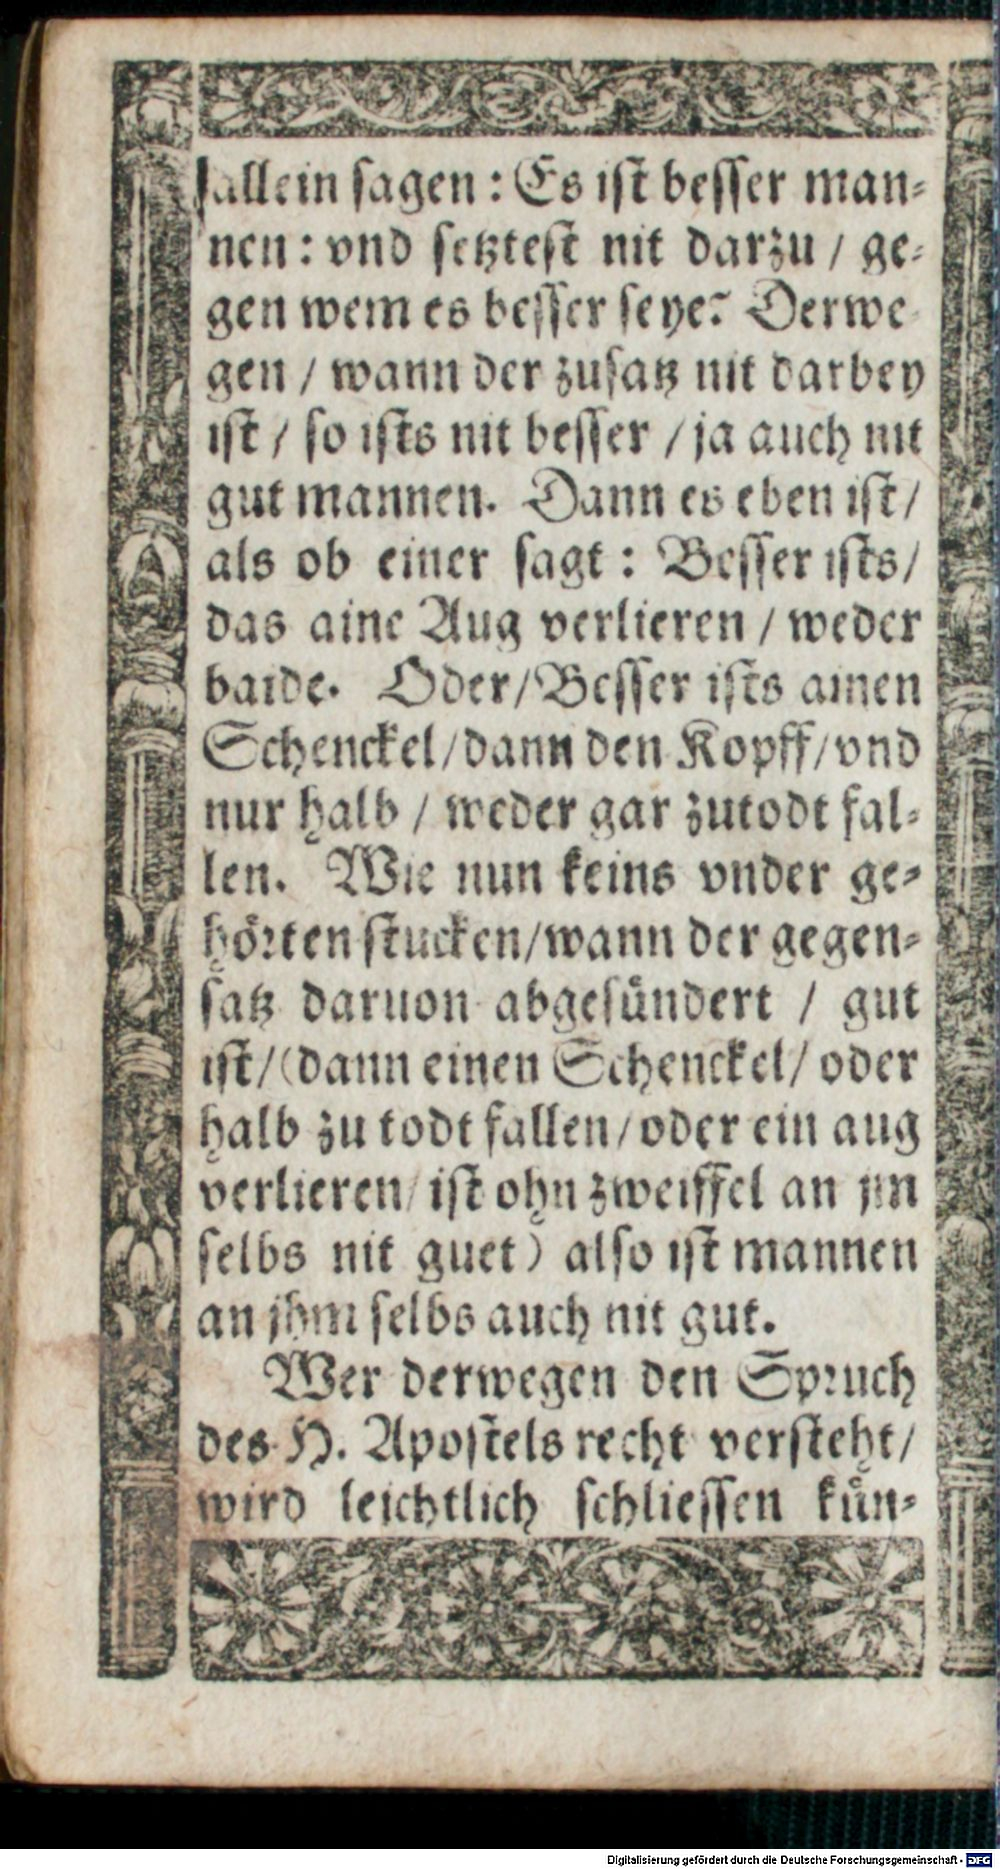 allein sagen: Es ist besser man-
nen: vnd setztest nit darzu / ge-
gen wem es besser seye? Derwe-
gen / wann der zusatz nit darbey
ist / so ists nit besser / ja auch nit
gut mannen. Dann es eben ist /
als ob einer sagt: Besser ists /
das aine Aug verlieren / weder
baide. Oder / Besser ists ainen
Schenckel / dann den Kopff / vnd
nur halb / weder gar zutodt fal-
len. Wie nun keins vnder ge-
hörten stucken / wann der gegen-
satz daruon abgesündert / gut
ist / (dann einen Schenckel / oder
halb zu todt fallen / oder ein aug
verlieren / ist ohn zweiffel an jm
selbs nit guet) also ist mannen
an jhm selbs auch nit gut.
Wer derwegen den Spruch
des H. Apostels recht versteht /
wird leichtlich schliessen kün-
Digitalisierung gefördert durch die Deutsche Forschungsgemeinschaft - DFG